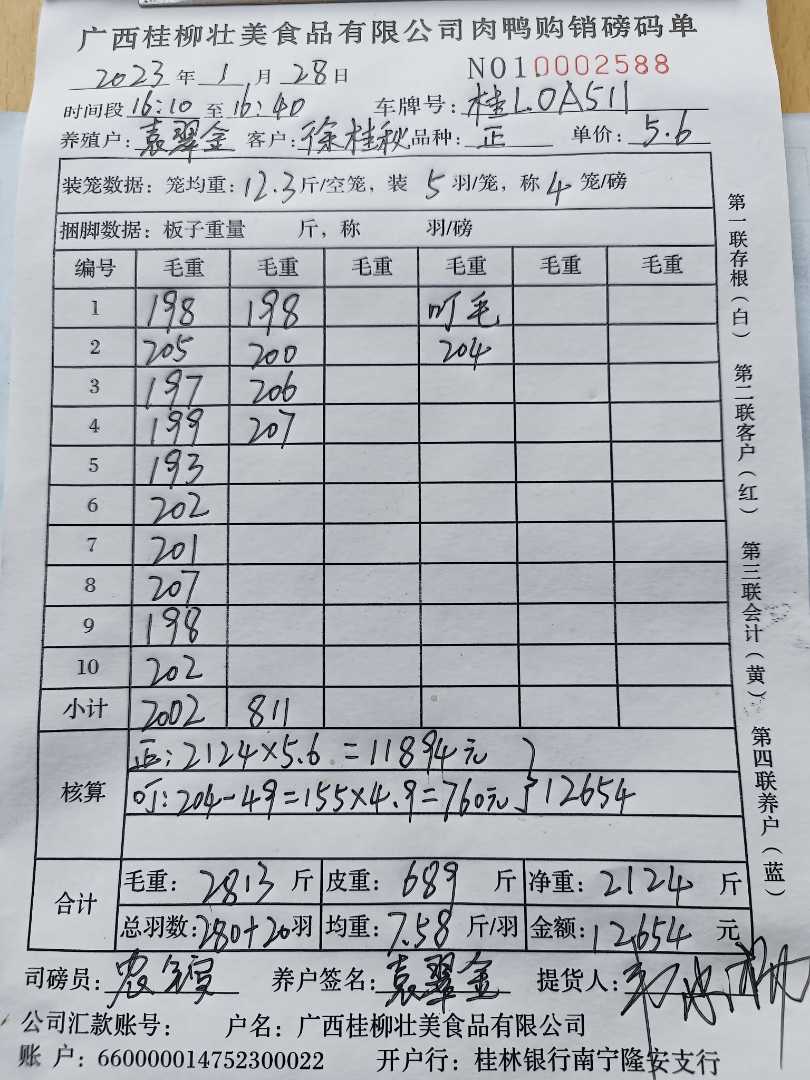 广西桂柳壮美食品有限公司肉鸭购销磅码单
2023年1月28日 NO10002588
时间段16:10至16:40 车牌号:桂L0A511
养殖户:袁翠金 客户:徐桂秋 品种:正 单价:5.6
装笼数据:笼均重:12.3斤/空笼,装5羽/笼,称4笼/磅
捆脚数据:板子重量 斤,称 羽/磅
编号 毛重 毛重 毛重 毛重 毛重 毛重
1 198 198 叮毛
2 205 200 204
3 197 206
4 199 207
5 193
6 202
7 201
8 207
9 198
10 202
小计 2002 811
核算 正:2124×5.6=11894元
叮:204-49=155×4.9=760元 }12654
合计 毛重:2813斤 皮重:689斤 净重:2124斤
总羽数:280+20羽 均重:7.58斤/羽 金额:12654元
司磅员: 养户签名:袁翠金 提货人:
公司汇款账号: 户名:广西桂柳壮美食品有限公司
账户:660000014752300022 开户行:桂林银行南宁隆安支行
第一联存根(白) 第二联客户(红) 第三联会计(黄) 第四联养户(蓝)